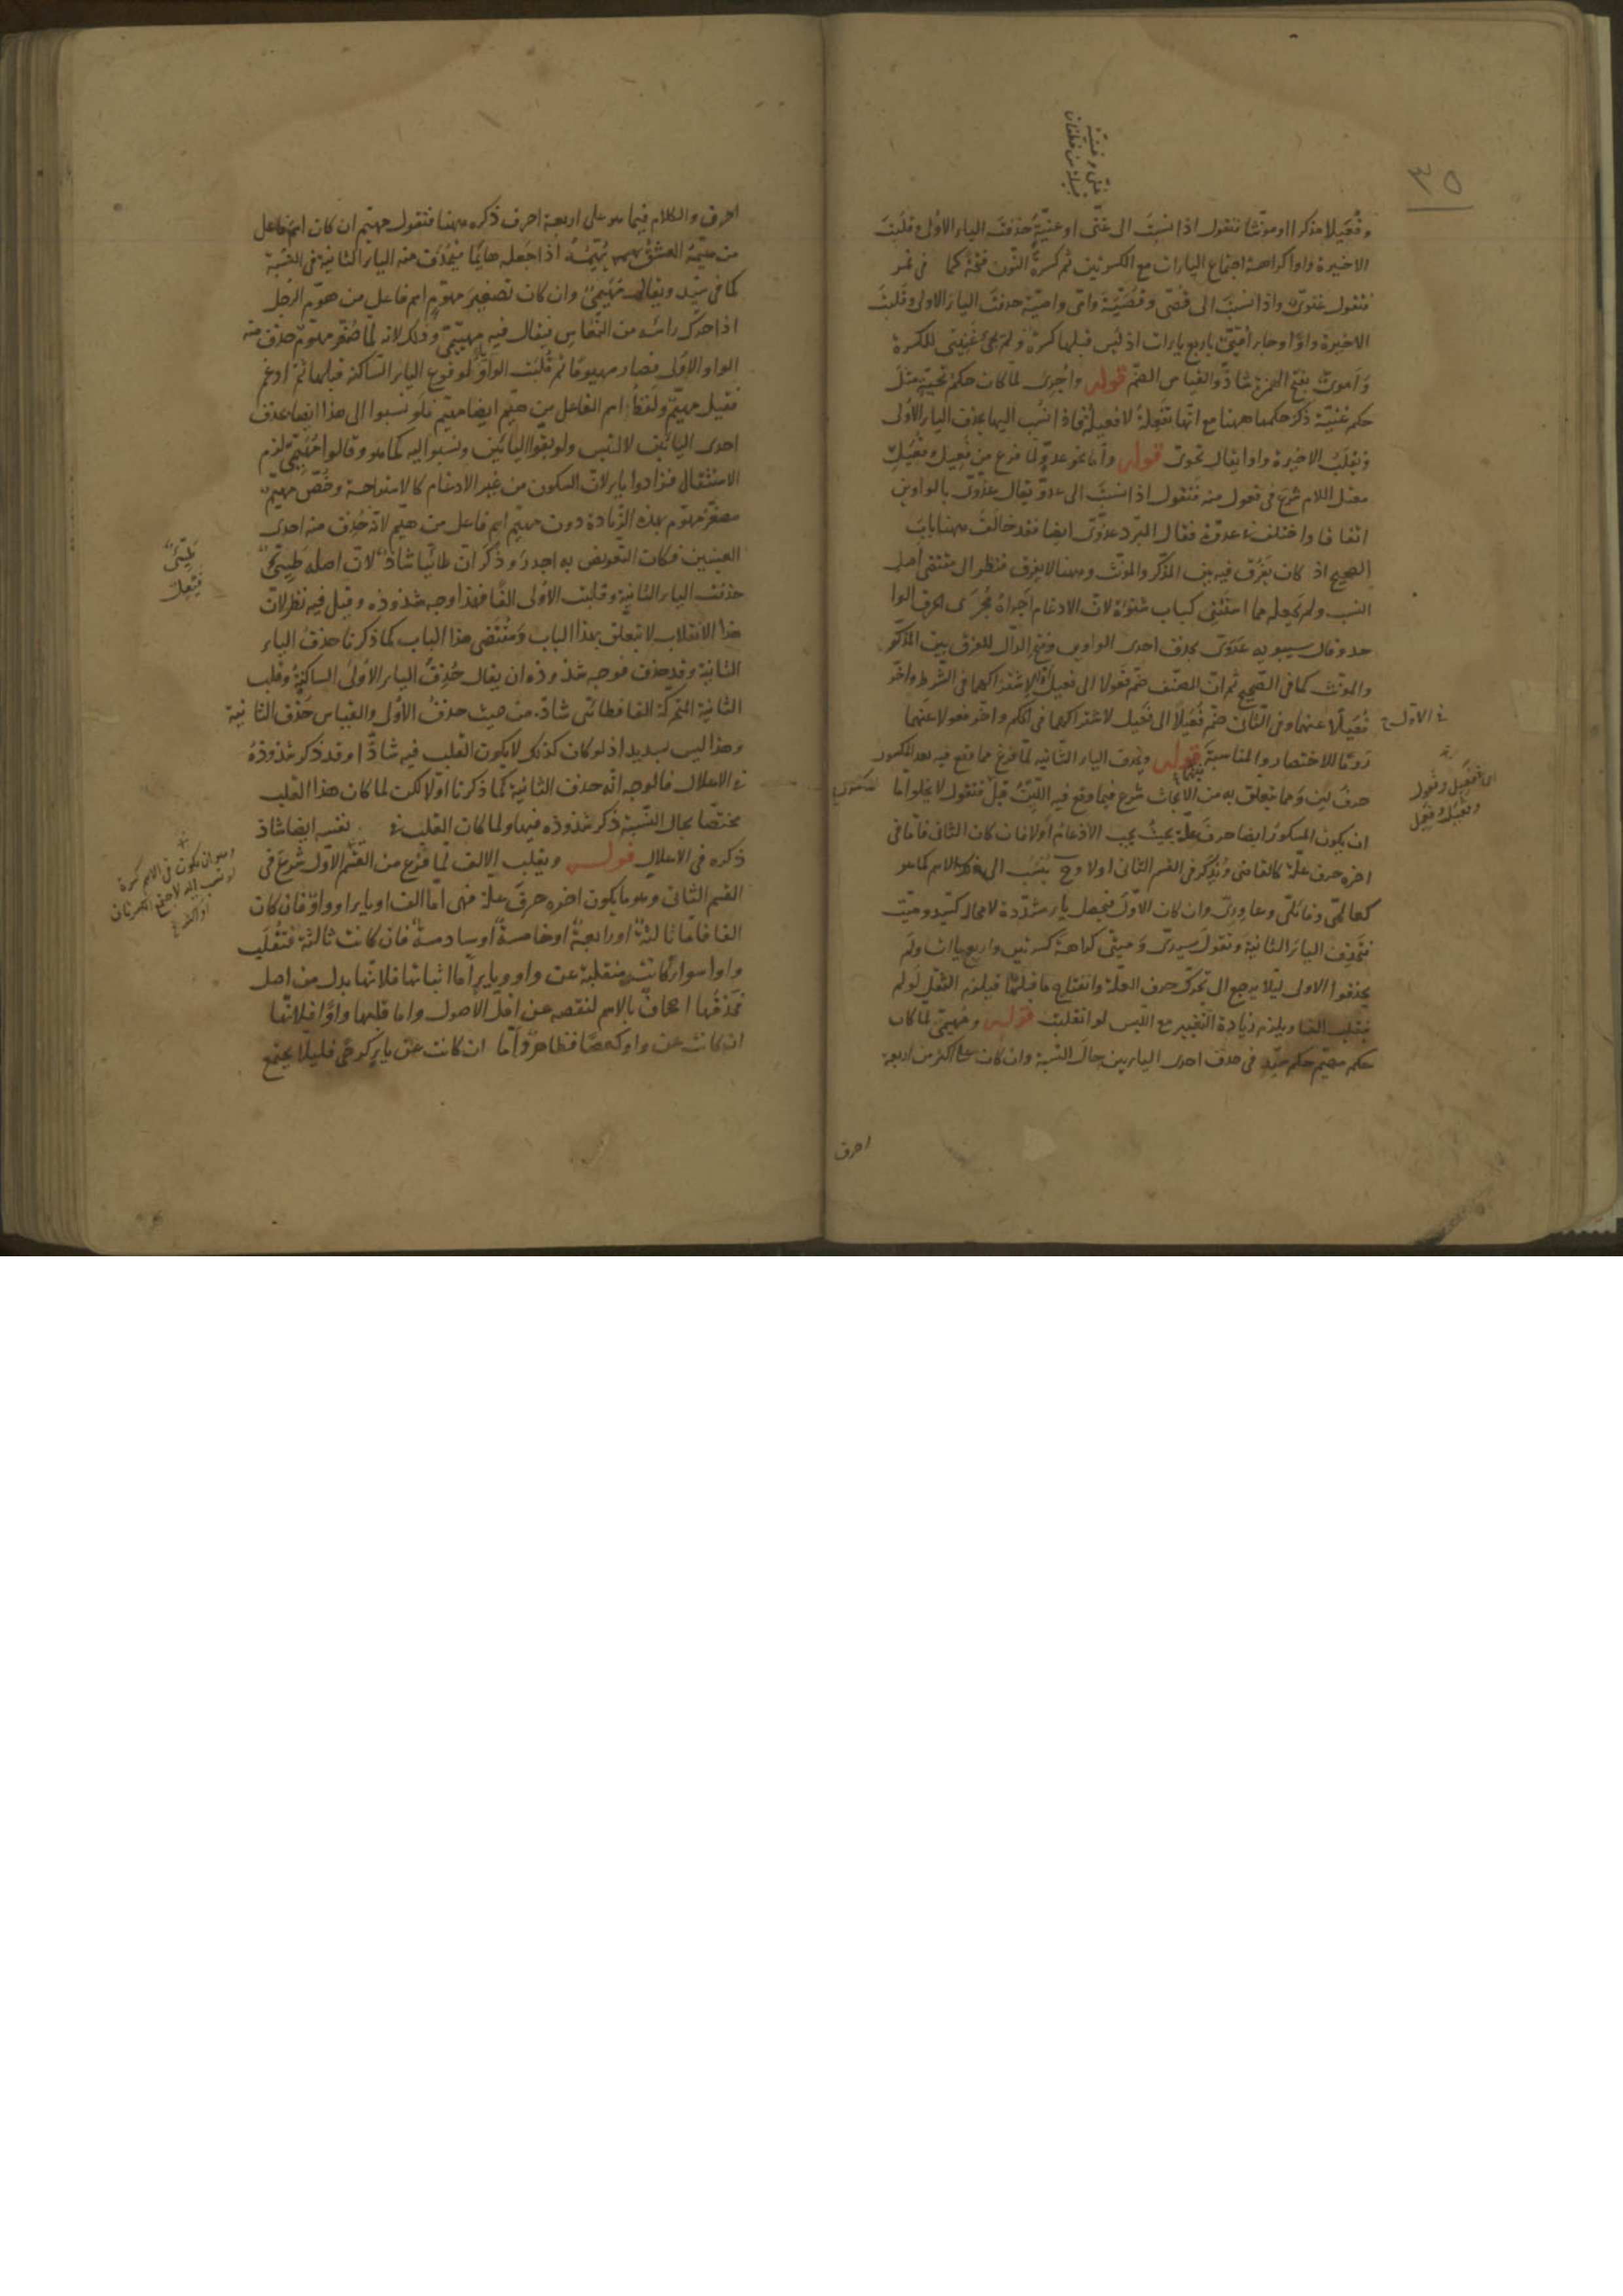 ٣٥
وفُعَيلا مذكرا او مؤنثا فتقول اذا نسبتَ الى غنّى او غنيّةٍ حذفتَ الياء الاولى وقلبتَ
الاخيرة واوا كراهة اجتماع الياءات مع الكسرتين ثم كسرة النّون فتحة كما فى نمر
فتقول غنوىّ واذا نسبتَ الى قصّى وقُصَيّة وامّى واميّة حذفتَ الياء الاولى وقلبتَ
الاخيرة واوًا وجاء اُمَيّىّ باربع ياءات اذ ليس قبلها كسرة ولم يجئ غَنِيّىّ للكسرة
وَاَموىّ بفتح الهمزة شاذّ والقياس الضمّ قوله واُجرِىَ لما كان حكم تحيّة مثلَ
حكم غنيّة ذكر حكمها ههنا مع انّها تفعلة لا فعيلة فاذا نُسب اليها بحذف الياء الاولى
وتقلبُ الاخيرة واوا يقال تحوىّ قوله وامّا نحو عدوّ لما فرغ من فَعِيل وفُعَيل
معتل اللام شرع فى فعول منه فتقول اذا نسبتَ الى عدوّ يقال عدُوّىّ بالواوين
اتفاقا واختلف فى عدوّة فقال المبرد عدُوّىّ ايضا فقد خالفَ ههنا بابَ
الصحيح اذ كان يَفْرُق فيه بين المذكّر والمؤنّث وههنا لا يفرق فنظر الى مقتضى اصل
النسب ولم يجعله مما استُثنى كباب شنوءة لانّ الادغام اجراهُ مُجرَى الحرف الوا
حد وقال سيبويه عَدَوىّ بحذف احدى الواوين وفتح الدال للفرق بين المذكّر
والمؤنث كما فى الصّحيح ثم انّ المصنّف ضمّ فَعُولا الى فعيل لاشتراكهما فى الشّرط واخّر
فُعَيلا عنهما وفى الثّانى ضمّ فُعَيلاً الى فَعيل لاشتراكهما فى الحكم واخّر فعولا عنهما
رَومًا للاختصار والمناسبة قوله وتحذف الياء الثّانيه لمّا فرغ مما وقع فيه بعد المكسور
حرفُ لين وما يتعلق به من الابحاث شرع فيما وقع فيه الليّنُ قبل فتقول لا يخلوا امّا
ان يكون المكسورُ ايضا حرف علّة بحيث يجب الادغام اولا فان كان الثانى فامّا فى
اخره حرف علّة كالقاضى ويُذكر فى القسم الثانى اولا وح يُنسَبُ الى ذلك الاسم كما هو
كعالمىّ وقائلىّ وعاوِرىّ وان كان الاوّل فيحصل ياء مشدّدة لا محالة كسيّد وميّت
فتحذف الياء الثانية وتقول سيدىّ وَميتىّ كراهة كسرتين واربع ياءات ولم
يحذفوا الاولى ليلا يرجع الى تحرّك حرف العلّة وانفتاح ما قبلها فيلزم الثقل لو لم
يقلب الفا ويلزم زيادة التغيير مع اللبس لو انقلبت قوله ومُهيمىّ لما كان
حكم مهيّم حكم سيّد فى حذف احدى الياءين حال النسبة وان كان على اكثر من اربعة
احرف
احرف والكلام فيما هو على اربعة احرف ذكره ههنا فتقول مهيّم ان كان اسم فاعل
من هيّمهُ العشقُ يُهيّمُهُ اذا جعله هايمًا فيُحذَف منه الياء الثانية فى النسبة
كما فى سيّد ويقال مُهَيمىّ وان كان تصغيرَ مهوّمٍ اسم فاعل من هوّم الرّجل
اذا حرّك رأسه من النّعاس فيقال فيه مهيّيمىّ وذلك لانه لما صُغّر مهوّم حذف منه
الواو الاولى فصار مهيومًا ثم قُلبَت الواو ياء لوقوع الياء السّاكنه قبلها ثمّ ادغم
فقيل مهيّم ولفظُ اسم الفاعل من هيّم ايضا مهيّم فلو نسبوا الى هذا ايضا بحذف
احدى اليائين لالتبس ولو بقّوا اليائين ونسبوا اليه كما هو وقالوا مُهَيّمىّ لزم
الاستثقال فزادوا ياء لانّ السكون من غير الادغام كالاستراحة وخصّ مهيّم
مصغّرُ مهوّم بهذه الزّيادة دون مهيّم اسم فاعل من هيّم لانّه حُذِف منه احدى
العينين فكان التّعويض به اجدر وذَكر انّ طائيّا شاذّ لانّ اصله طَيّئىّ
حذفت الياء الثانية وقلبت الاولى الفًا فهذا وجه شذوذه وقيل فيه نظر لانّ
هذا الانقلاب لا يتعلق بهذا الباب وَمُقتضى هذا الباب كما ذكرنا حذفُ الياء
الثانية وقد حذف فوجه شذوذه ان يقال حُذِفَ الياء الاولى الساكنةُ وقلب
الثانية المتحركة الفا فطائىّ شاذّ من حيث حذفُ الاوّل والقياس حَذف الثانية
وهذا ليس بسديد اذ لو كان كذلك لا يكون القلب فيه شاذّا وقد ذكر شذوذهُ
فى الاعلال فالوجه انّه حذف الثانية كما ذكرنا اوّلا لكن لما كان هذا القلب
مختصّا بحال النّسبة ذكر شذوذه فيها ولما كان القلب فى نفسه ايضا شاذ
ذكره فى الاعلال قوله ويقلب الالف لما فرغ من القسم الاوّل شرع فى
القسم الثانى وهو ما يكون اخره حرفَ علة فهى امّا الف او ياء او واو فان كان
الفا فامّا ثالثة او رابعةً او خامسةً او سادسةً فان كانت ثالثة فتُقلَب
واوا سواء كانت منقلبة عن واو وياء اما اثباتها فلانّها بدل من اصل
فحَذفُها اجحافٌ بالاسم لنقصه عن اقلّ الاصول واما قلبها واوًا فلانّها
ان كانت عن واو كعصًا فظاهرٌ وامّا ان كانت عن ياء كرحًى فليلا يجتمع
فى الاوّل
فَعِيل وفَعُول
طَيِّئىّ
فَيْعِل
وهو ان يكون فى الاسم كسرة
لو نسب اليه لاجتمع الكسرتان
او اكثر